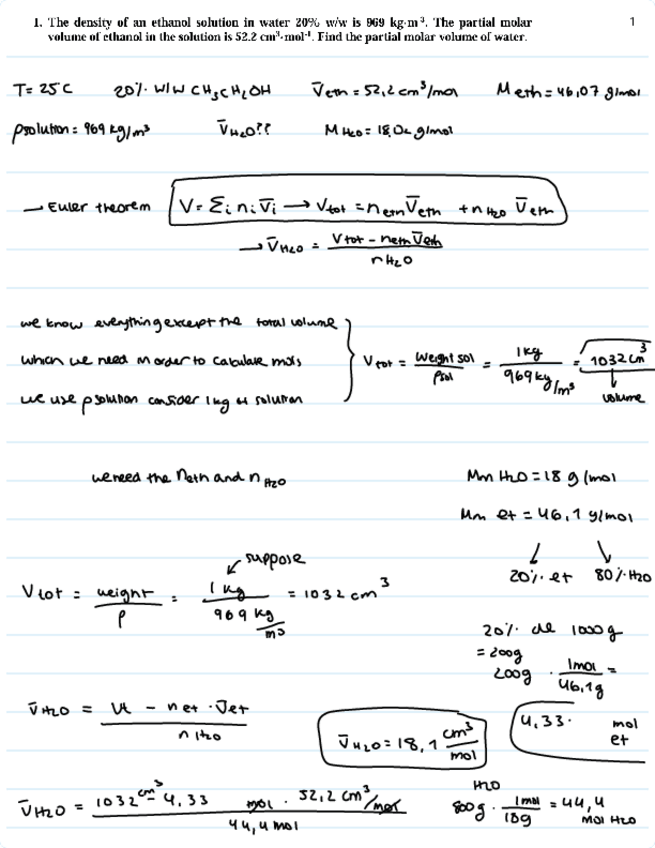 1. The density of an ethanol solution in water 20% w/w is 969 kg·m⁻³. The partial molar
volume of ethanol in the solution is 52.2 cm³·mol⁻¹. Find the partial molar volume of water.
1
T= 25C 20% W/W CH3CH2OH V̄eth = 52,2 cm³/mol Meth = 46,07 g/mol
ρsolution = 969 kg/m³ V̄H2O?? MH2O = 18,02 g/mol
→ Euler theorem V = Σi ni V̄i → Vtot = neth V̄eth + nH2O V̄eth
→ V̄H2O = (Vtot - neth V̄eth) / nH2O
we know everything except the total volume
which we need in order to calculate mols
we use ρsolution consider 1kg of solution
Vtot = weight sol / ρsol = 1kg / 969 kg/m³ = 1032 cm³
↓
volume
we need the neth and nH2O
Mm H2O = 18 g/mol
Mm et = 46,1 g/mol
↓ ↘
20% et 80% H2O
suppose
Vtot = weight / ρ = 1 kg / 969 kg/m³ = 1032 cm³
20% de 1000g
= 200g
200g · 1mol / 46,1g =
4,33· mol et
V̄H2O = (Vt - net · V̄et) / nH2O
V̄H2O = 18,1 cm³/mol
H2O
800g · 1mol / 18g = 44,4 mol H2O
V̄H2O = (1032 cm³ - 4,33 mol · 52,2 cm³/mol) / 44,4 mol